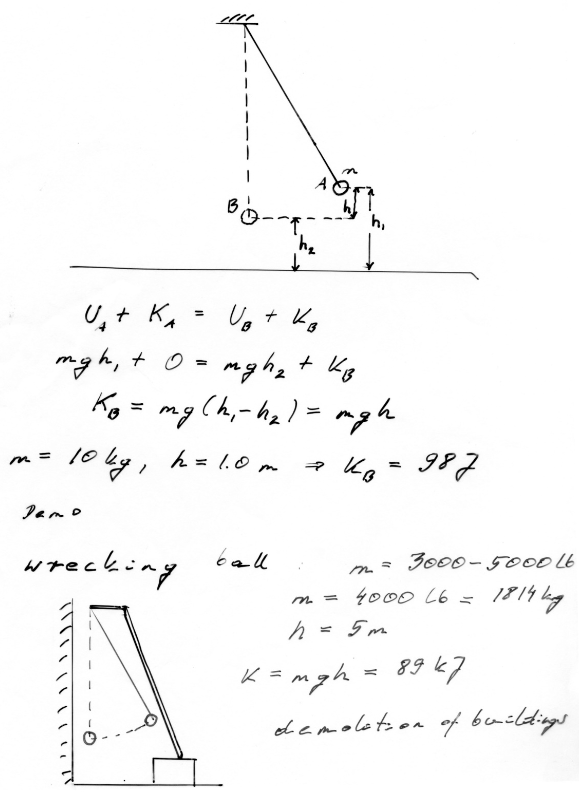 m
A
B
h
h₁
h₂
U_A + K_A = U_B + K_B
mgh₁ + 0 = mgh₂ + K_B
K_B = mg(h₁-h₂) = mgh
m = 10 kg, h = 1.0 m ⇒ K_B = 98 J
Demo
wrecking ball : m = 3000-5000 Lb
m = 4000 Lb = 1814 kg
h = 5 m
K = mgh = 89 kJ
demolation of buildings